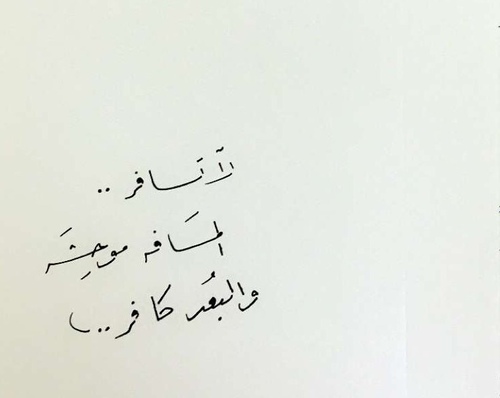 لا تَسافر ..
المسَافه موحِشَه
والبعُد كافر ..